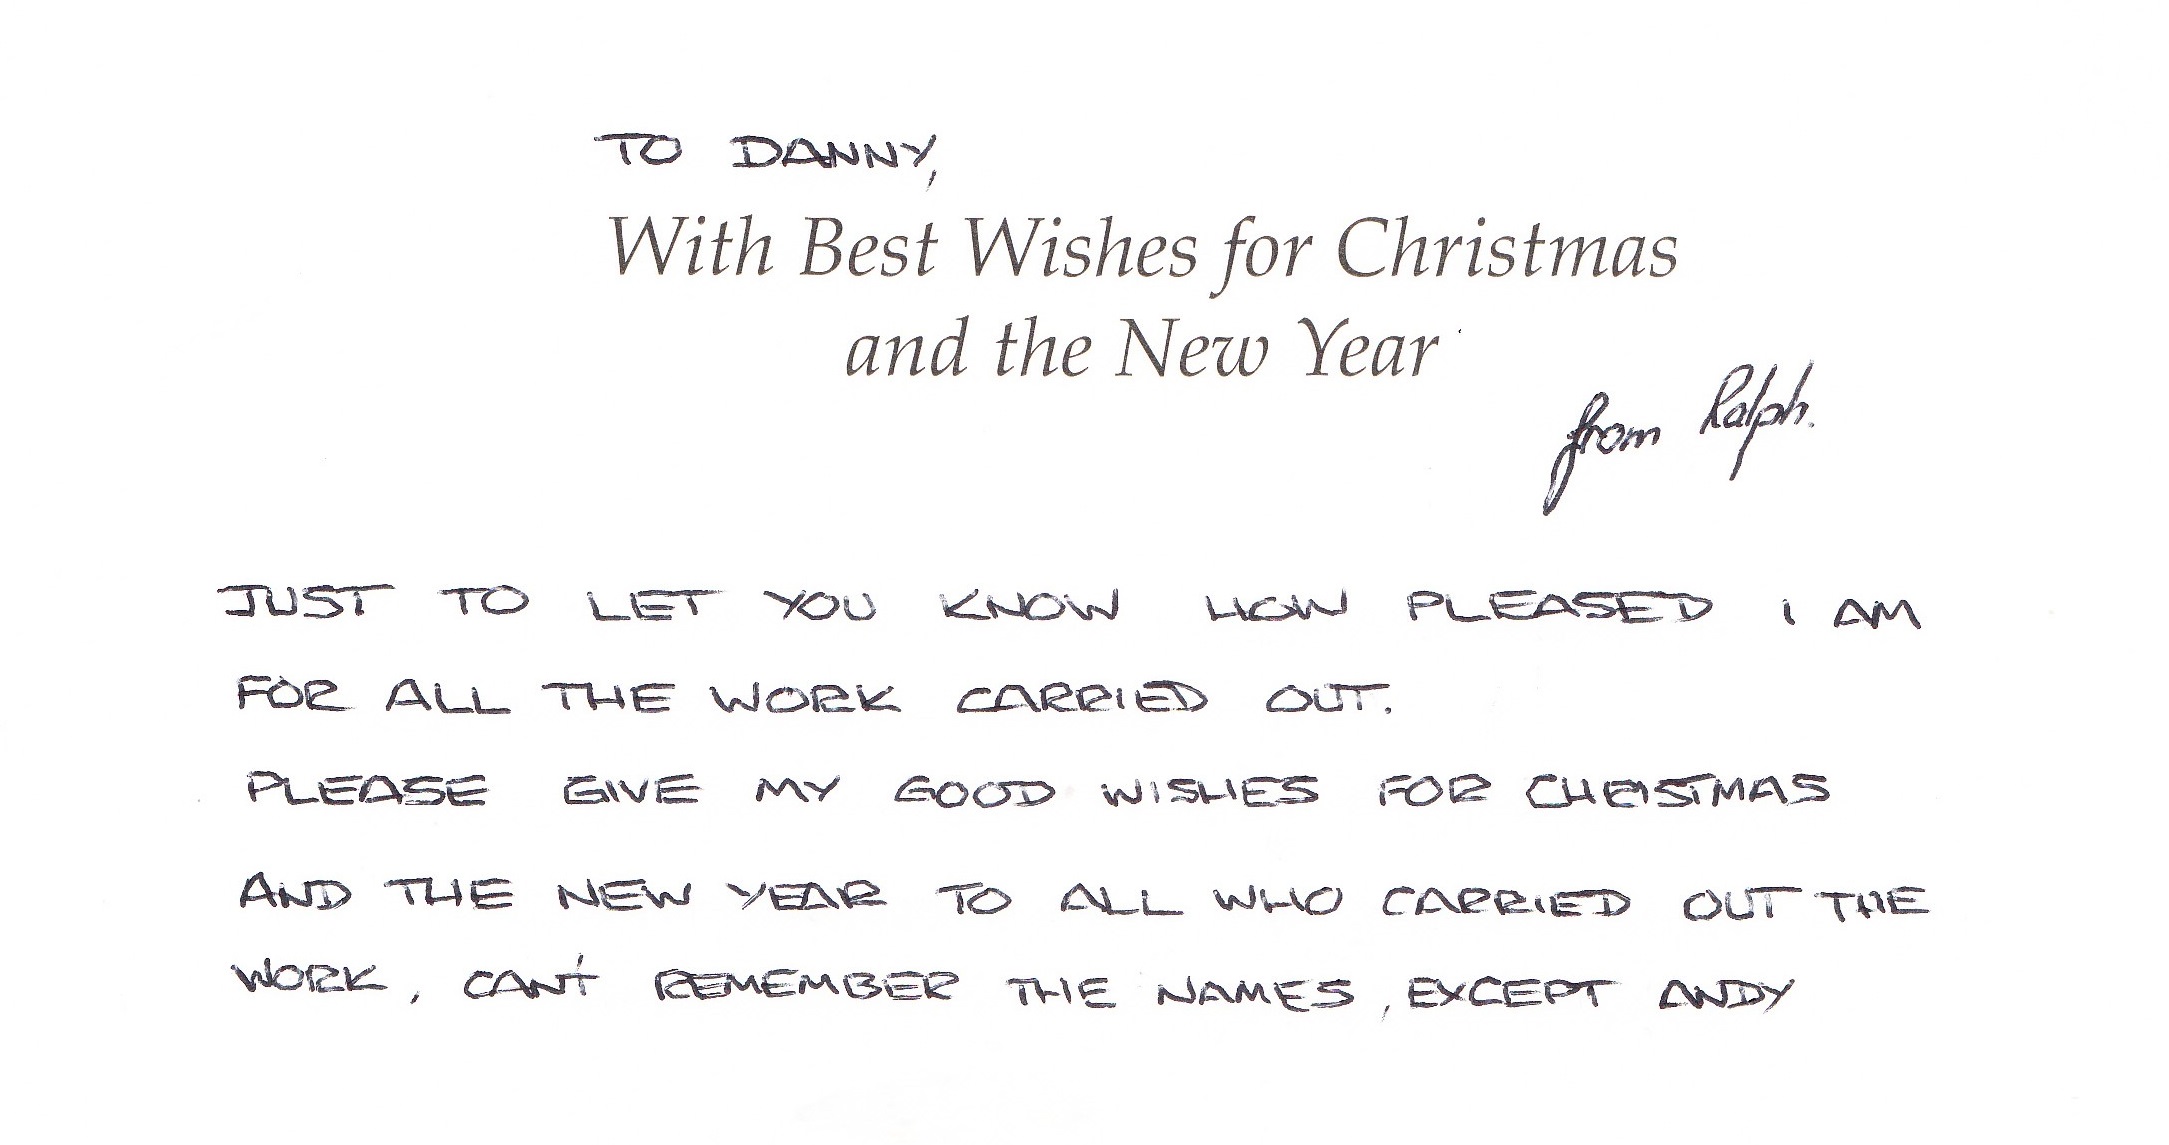 TO DANNY,
With Best Wishes for Christmas
and the New Year
from Ralph.
JUST TO LET YOU KNOW HOW PLEASED I AM
FOR ALL THE WORK CARRIED OUT.
PLEASE GIVE MY GOOD WISHES FOR CHRISTMAS
AND THE NEW YEAR TO ALL WHO CARRIED OUT THE
WORK, CAN'T REMEMBER THE NAMES, EXCEPT ANDY